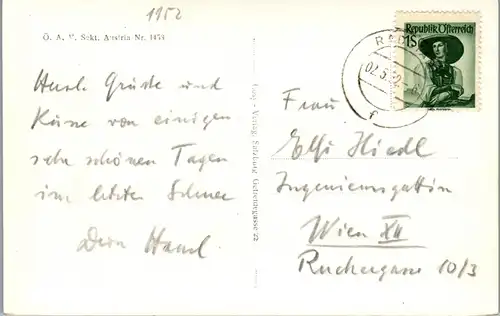 1952
Ö. A. V. Sekt. Austria Nr. 1473
Herzl. Grüße und
Küsse von einigen
sehr schönen Tagen
im letzten Schnee
Dein Hansl
Jung - Verlag: Salzburg
RAD
02.5.52
f
Republik Österreich
1S
Frau
Elfi Hiedl
Ingenieursgattin
Wien XII
Ruckergasse 10/3